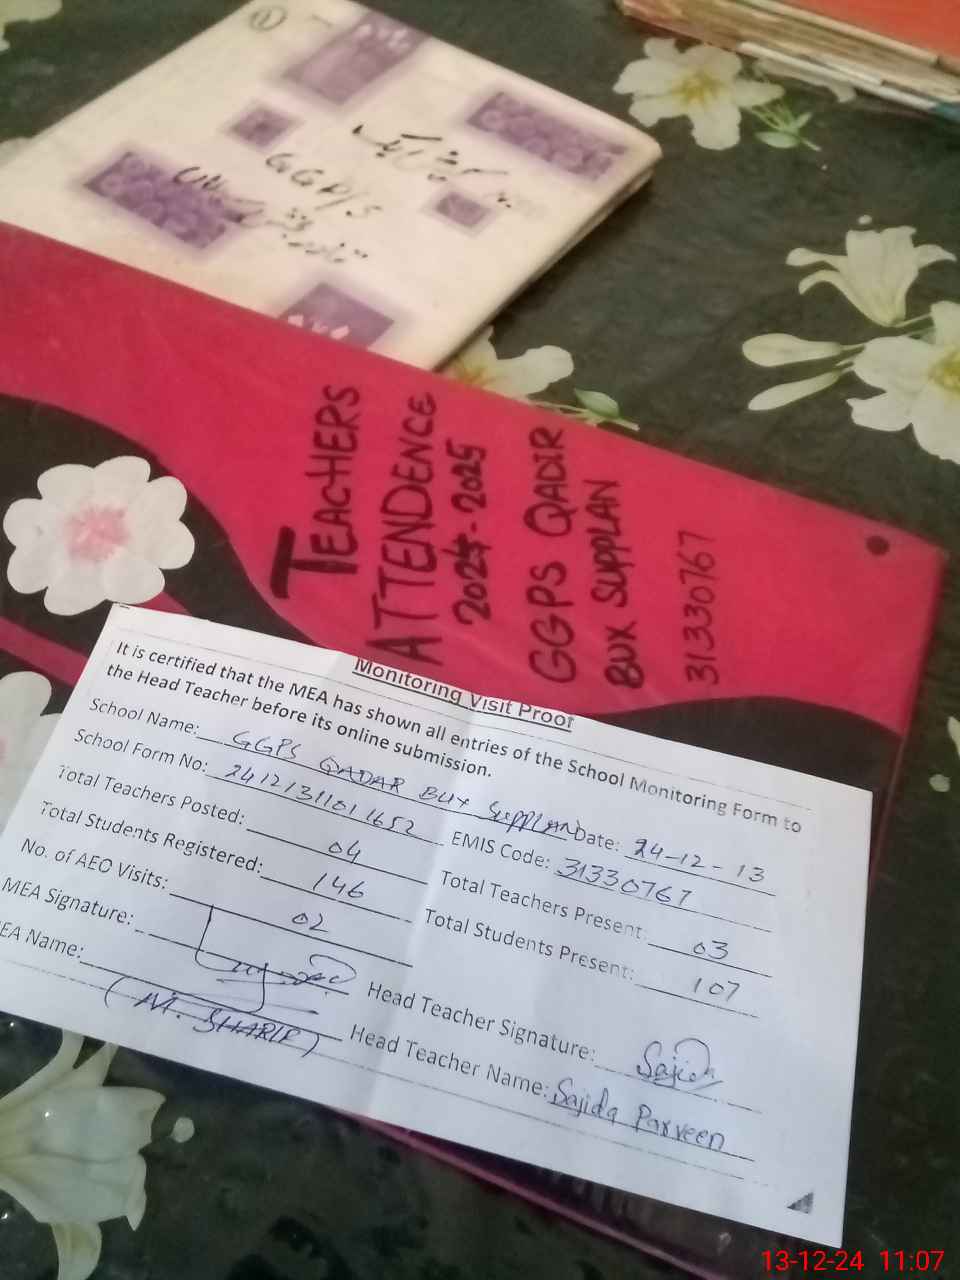 1
GGP/S
TEACHERS
ATTENDENCE
2024-2025
GGPS QADIR
BUX SUPPLAN
31330767
Monitoring Visit Proof
It is certified that the MEA has shown all entries of the School Monitoring Form to
the Head Teacher before its online submission.
School Name: GGPS QADAR BUX SUPPLAN Date: 24-12-13
School Form No: 24121311011652 EMIS Code: 31330767
Total Teachers Posted: 04 Total Teachers Present: 03
Total Students Registered: 146 Total Students Present: 107
No. of AEO Visits: 02
MEA Signature: Head Teacher Signature: Sajida
EA Name: (M. SHARIF) Head Teacher Name: Sajida Parveen
13-12-24 11:07